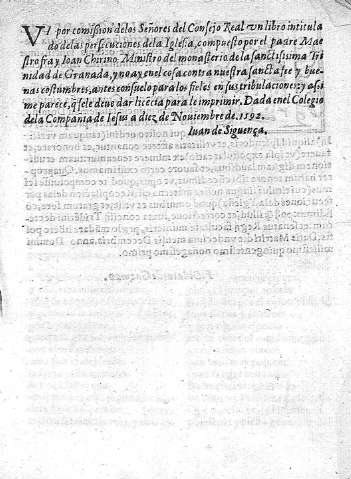 VI por comision delos Señores del Consejo Real vn libro intitula
do de las persecuciones dela Iglesia, compuesto por el padre Mae
stro fray Ioan Chirino Ministro del monasterio de la sanctissima Tri
nidad de Granada, y no ay en el cosa contra nuestra sancta fee y bue
nas costumbres, antes consuelo para los fieles en sus tribulaciones: y assi
me parece, q̃ se le deue dar licẽcia para le imprimir. Dada en el Colegio
de la Compania de Iesus a diez de Nouiembre de. 1592.
Iuan de Siguença.